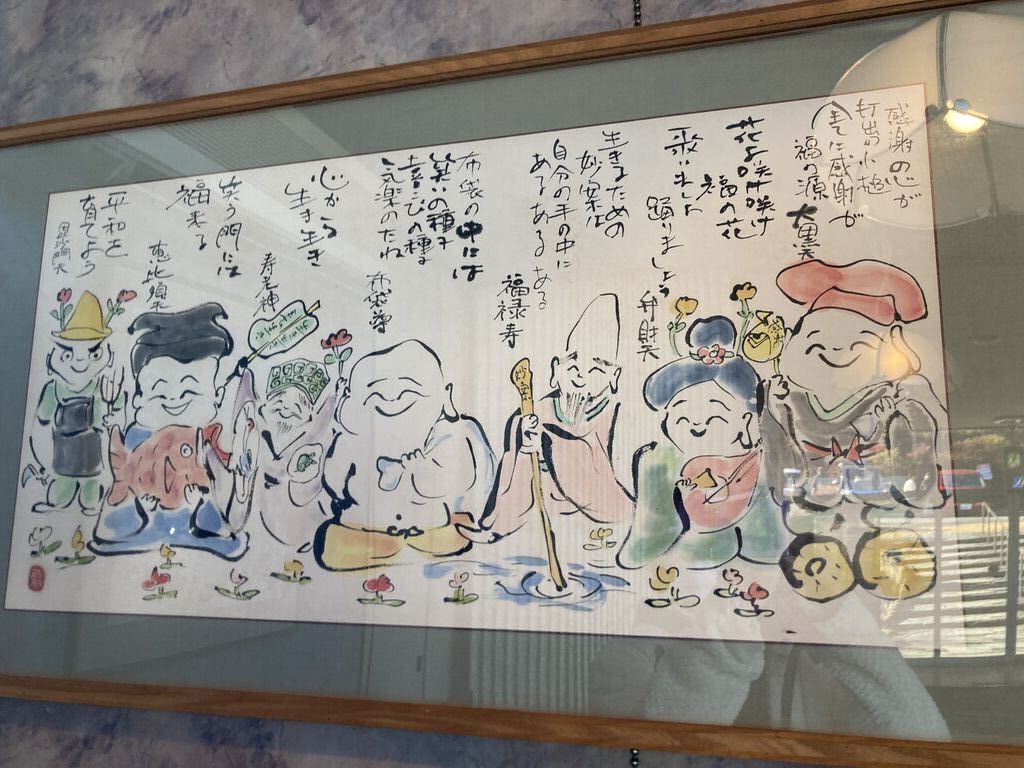 感謝の心が
打出の小槌
全てに感謝が
福の源
大黒天
花よ咲け咲け
福の花
歌いましょ
踊りましょう
弁財天
生きるための
妙案は
自分の手の中に
あるあるある
福禄寿
布袋の中には
笑いの種子
喜びの種
気楽のたね
布袋尊
心から
生き生き
寿老神
笑う門には
福来る
恵比須
平和を
育てよう
毘沙門天
妙案